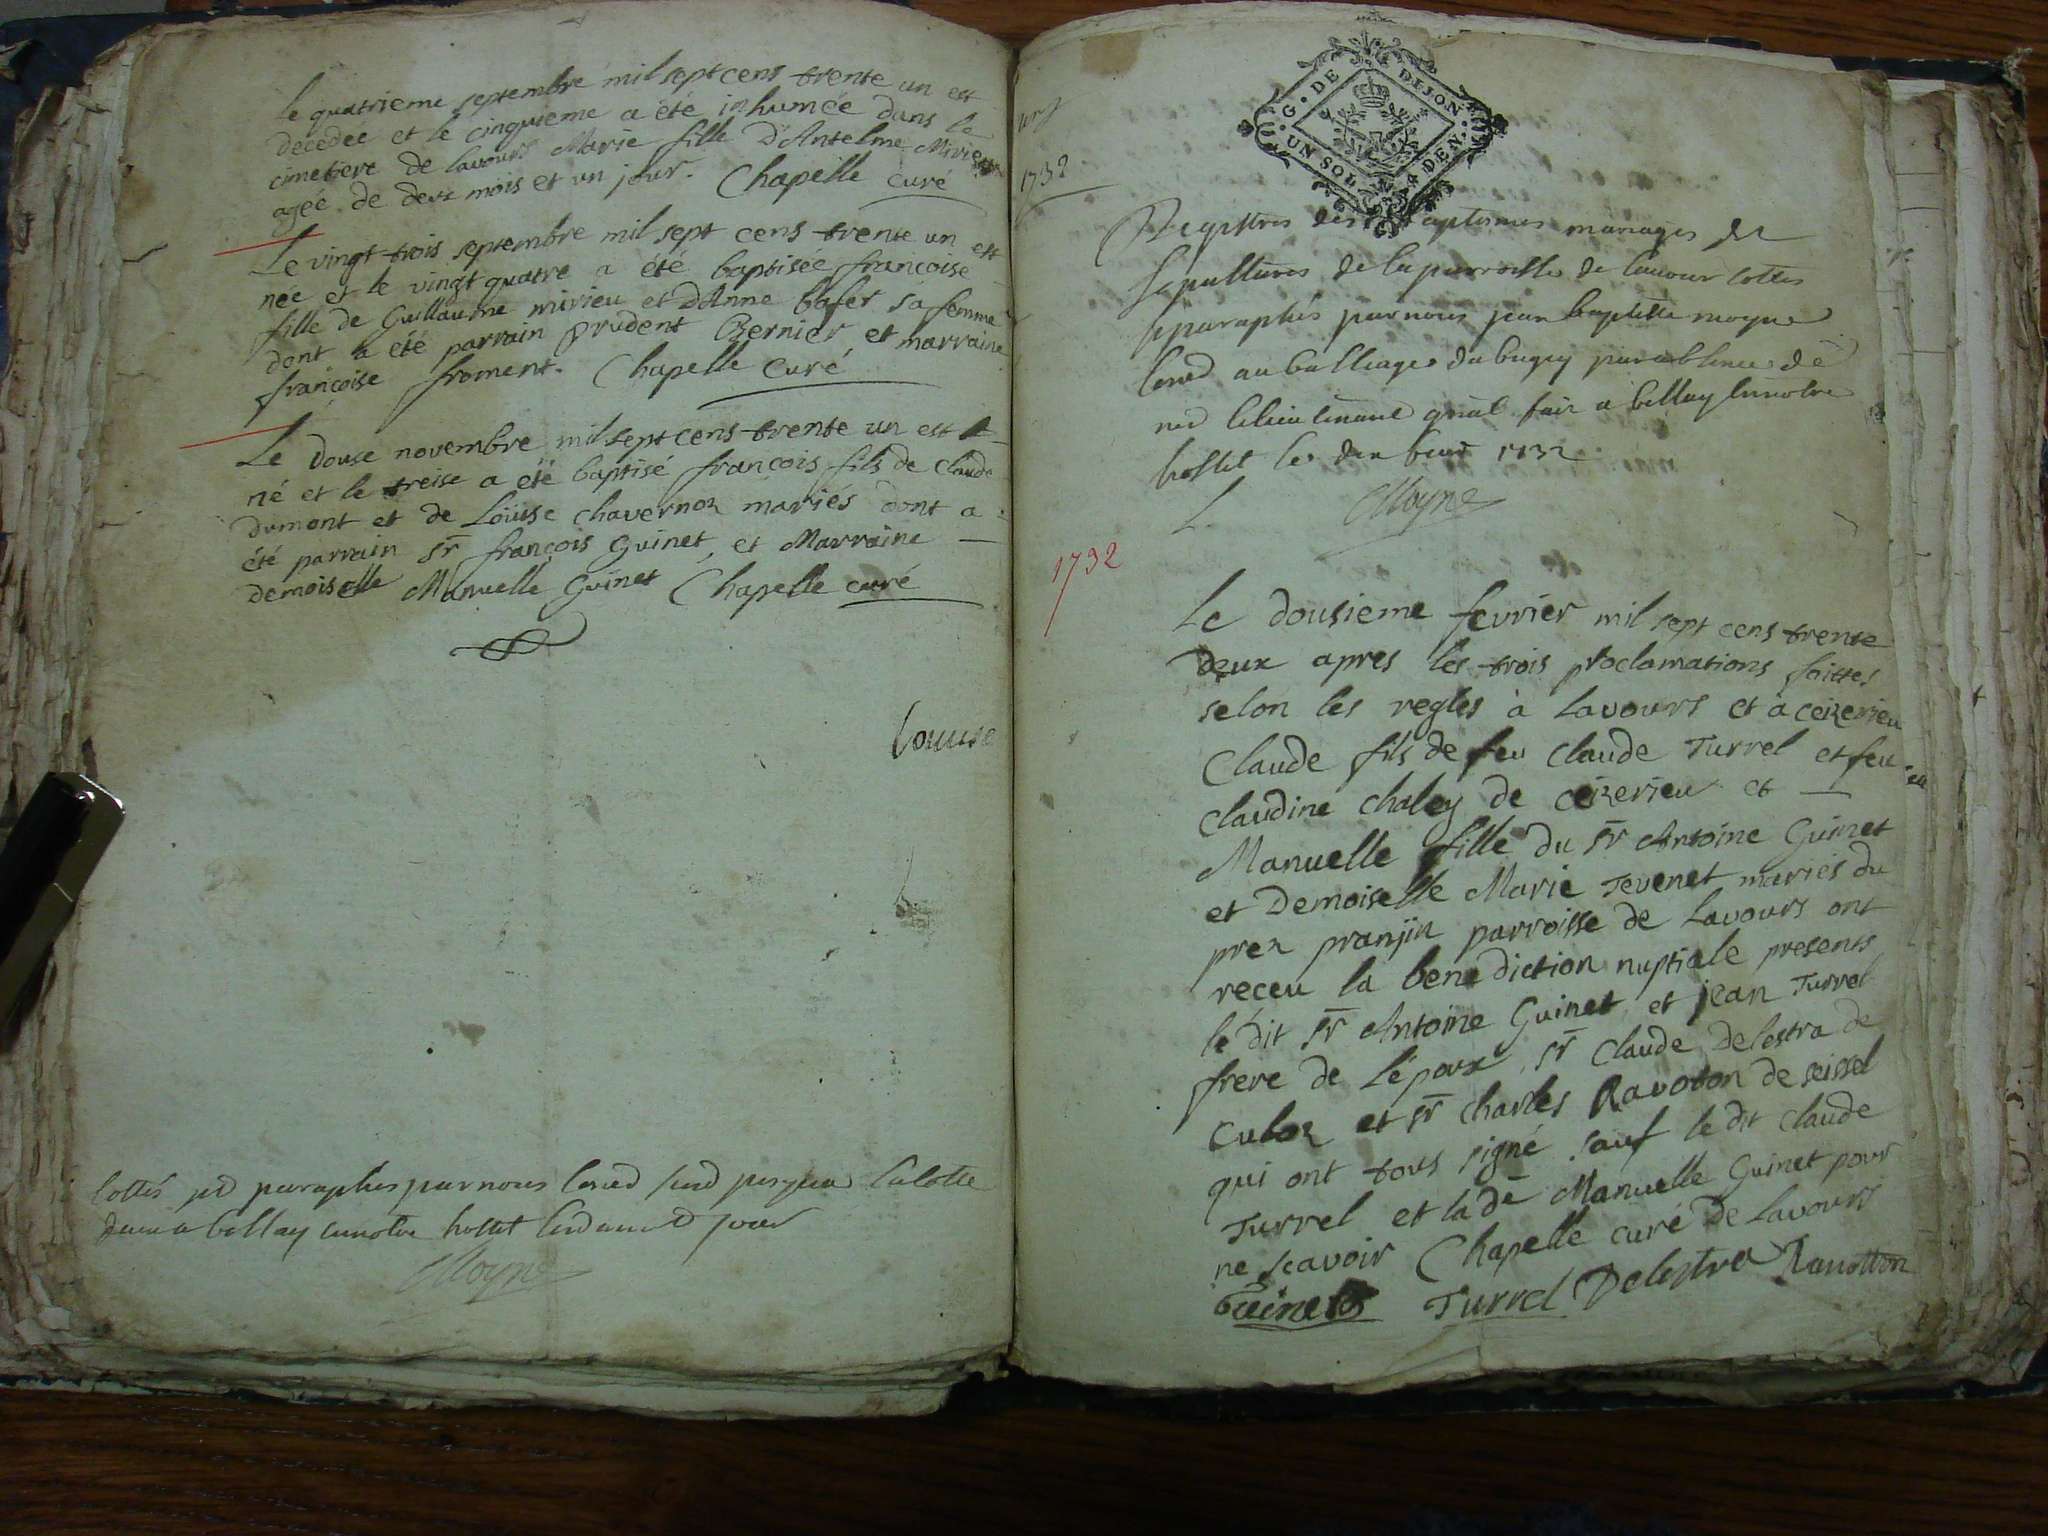 Le quatrieme septembre mil sept cens trente un est
decedée et le cinquieme a été inhumée dans le
cimetiere de lavours Marie fille D'Antelme Mirieu
agée de deux mois et un jour. Chapelle curé
Le vingt trois septembre mil sept cens trente un est
née et le vingt quatre a été baptisée françoise
fille de Guillaume mirieu et D'Anne bafer sa femme
dont a été parrain Prudent Bernier et marraine
françoise froment. Chapelle Curé
Le douse novembre mil sept cens trente un est
né et le treise a été baptisé françois fils de Claude
Dumont et de Loüise Chavernoz mariés dont a
été parrain Sr françois Guinet et Marraine
demoiselle Manuelle Guinet Chapelle curé
Louise
Cottés et paraphés par nous
a bellay en notre hostel
Moyne
1732
G. DE DIJON.
UN SOL 4 DEN.
Registres des baptesmes mariages et
sepultures de la parroisse de lavour cottés
paraphés par nous jean baptiste moyne
au balliage du bugey par absence de
le lieutenant gnal fait a bellay en notre
hostel le 1732
Moyne
1732
Le dousieme fevrier mil sept cens trente
deux apres les trois proclamations faittes
selon les regles à Lavours et à ceizerieu
Claude fils de feu Claude Turrel et feu
Claudine Chaley de ceizerieu et
Manuelle fille du Sr Antoine Guinet
et Demoiselle Marie Tevenet mariés du
prez pranjin parroisse de Lavours ont
receu la benediction nuptiale presents
le dit Sr Antoine Guinet et jean Turrel
frere de L'époux Sr Claude Delestra de
Culoz et Sr Charles Ravoton de seissel
qui ont tous signé sauf le dit Claude
Turrel et la de Manuelle Guinet pour
ne scavoir Chapelle curé de Lavours
Guinet Turrel Delestra Ranotton